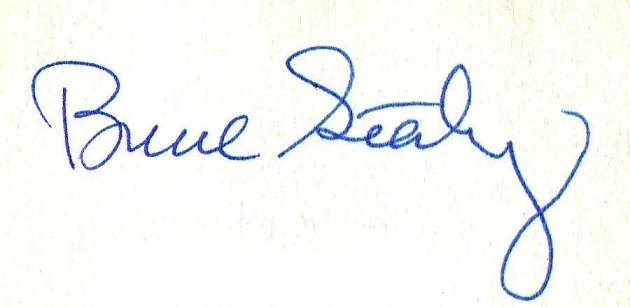 Bruce Sealy